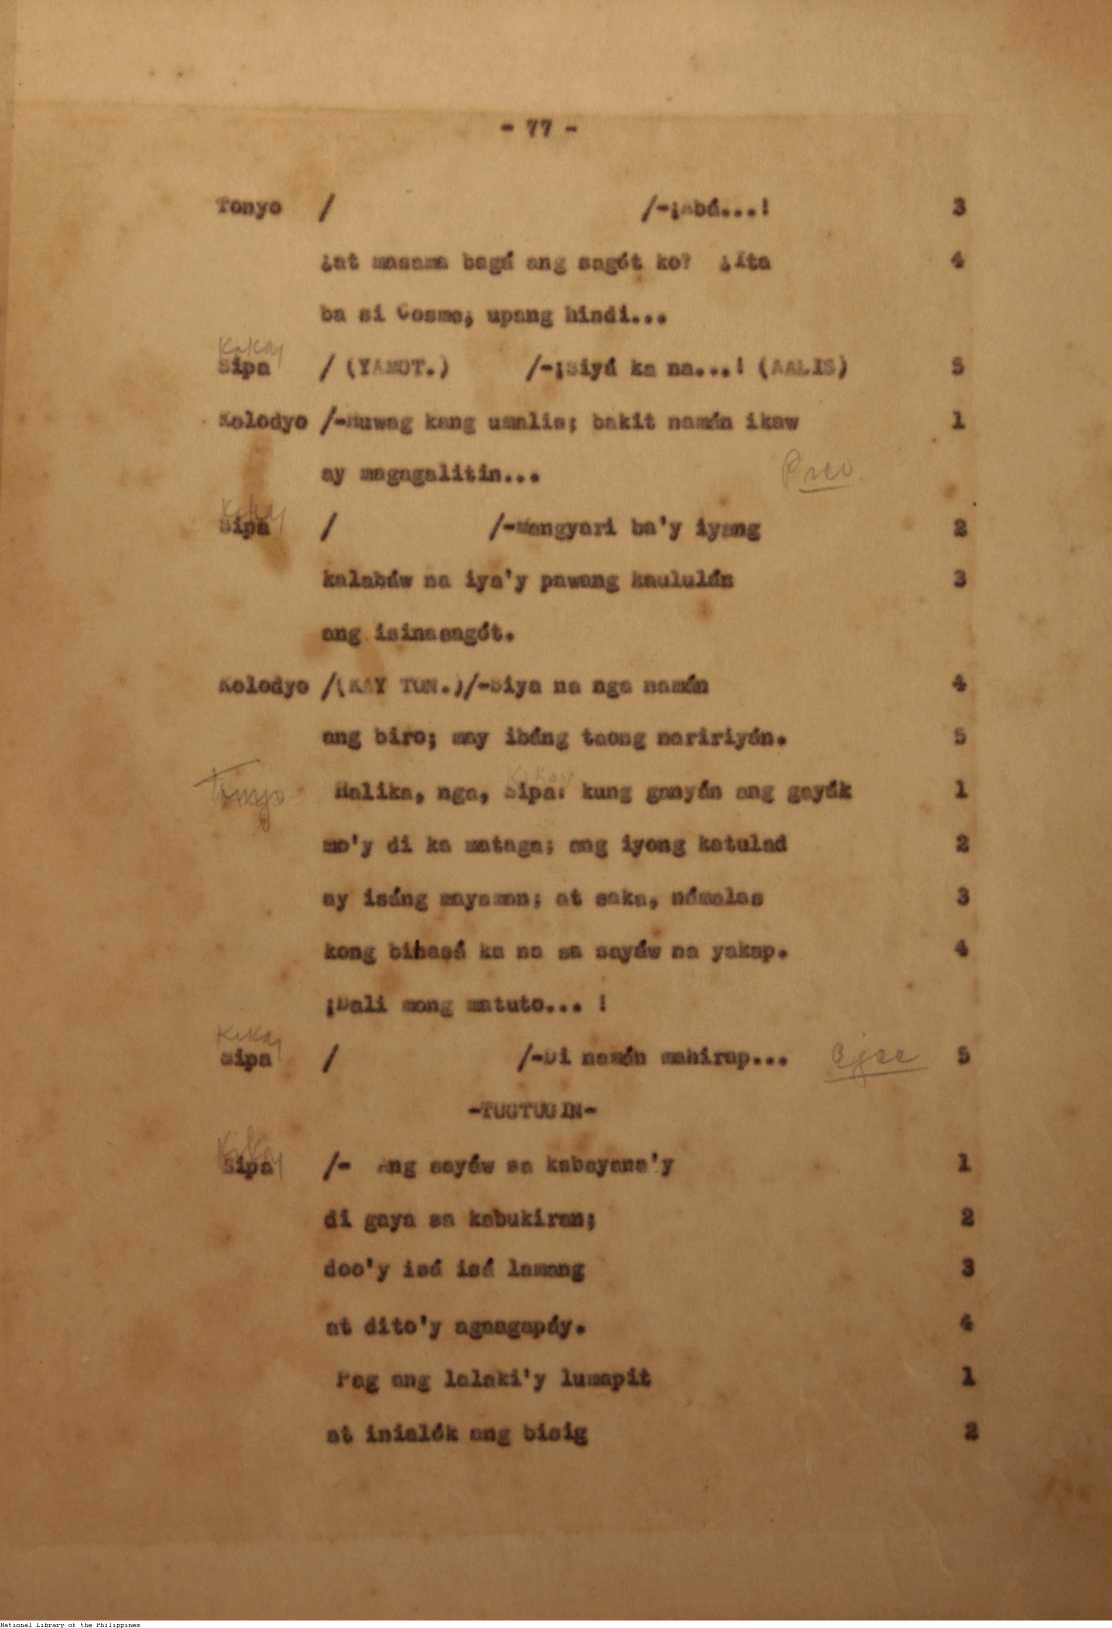 - 77 -
Tonyo / /-¡abá...! 3
¿at masama bagá ang sagót ko? ¿Ita 4
ba si Cosme, upang hindi...
Kikay
Sipa / (YAMOT.) /-¡Siyá ka na...! (AALIS) 5
Kolodyo /-Huwag kang umalis; bakit namán ikaw 1
ay magagalitin...
Kikay
Sipa / /-Mangyari ba'y iyang 2
kalabáw na iya'y pawang kaululán 3
ang isinasagót.
Kolodyo /(KAY TON.)/-Siya na nga namán 4
ang biro; may ibáng taong naririyán. 5
Kikay
Tonyo Halika, nga, Sipa: kung ganyán ang gayák 1
mo'y di ka mataga; ang iyong katulad 2
ay isáng mayaman; at saka, námalas 3
kong bihasá ka na sa sayáw na yakap. 4
¡Dali mong matuto... !
Kikay
Sipa / /-Di namán mahirap... 5
-TUGTUGIN-
Kikay
Sipa /- Ang sayáw sa kabayana'y 1
di gaya sa kabukiran; 2
doo'y isá isá lamang 3
at dito'y agaagapáy. 4
Pag ang lalaki'y lumapit 1
at inialók ang bisig 2
National Library of the Philippines